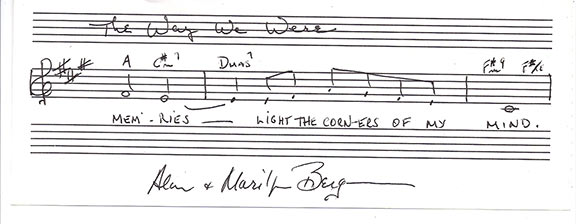 The Way We Were
A C#m7 Dmaj7 F#m9 F#m/E
MEM - RIES — LIGHT THE CORN-ERS OF MY MIND.
Alan & Marilyn Bergman